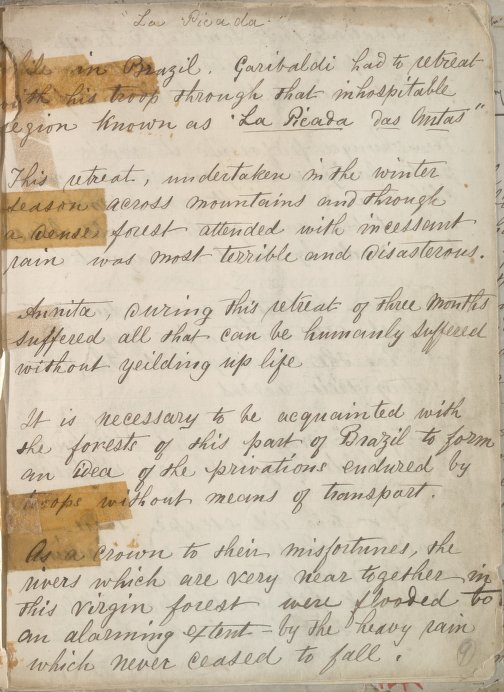 "La Picada"
in Brazil. Garibaldi had to retreat
with his troop through that inhospitable
region known as "La Picada das Antas"
This retreat, undertaken in the winter
season across mountains and through
a dense forest attended with incessant
rain was most terrible and disasterous.
Annita, during this retreat of three months
suffered all that can be humanly suffered
without yeilding up life
It is necessary to be acquainted with
the forests of this part of Brazil to form
an idea of the privations endured by
troops without means of transport.
As a crown to their misfortunes, the
rivers which are very near together in
this virgin forest were flooded to
an alarming extent - by the heavy rain
which never ceased to fall.
9